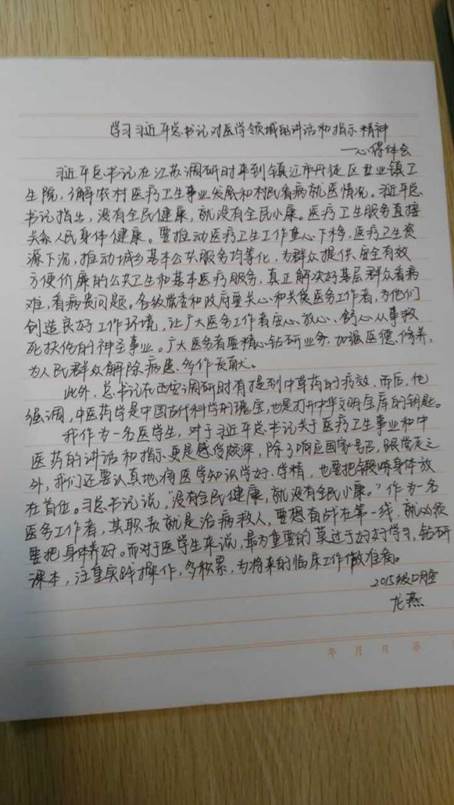 学习习近平总书记对医学领域的讲话和指示精神
——心得体会
习近平总书记在江苏调研时来到镇江市丹徒区世业镇卫
生院，了解农村医疗卫生事业发展和村民看病就医情况。习近平总
书记指出，没有全民健康，就没有全民小康。医疗卫生服务直接
关系人民身体健康。要推动医疗卫生工作重心下移，医疗卫生资
源下沉，推动城乡基本公共服务均等化，为群众提供安全有效
方便价廉的公共卫生和基本医疗服务，真正解决好基层群众看病
难，看病贵问题。各级党委和政府要关心和关爱医务工作者，为他们
创造良好工作环境，让广大医务工作者安心、放心、舒心从事救
死扶伤的神圣事业。广大医务者要精心钻研业务，加强医德修养，
为人民群众解除病患多作贡献。
此外，总书记在西安调研时有提到中草药的疗效，而后，他
强调，中医药学是中国古代科学的瑰宝，也是打开中华文明宝库的钥匙。
我作为一名医学生，对于习近平总书记关于医疗卫生事业和中
医药的讲话和指示更是感悟颇深，除了响应国家号召，跟党走之
外，我们还要认真地将医学知识学好、学精，也要把锻炼身体放
在首位。习总书记说，“没有全民健康，就没有全民小康。”作为一名
医务工作者，其职责就是治病救人，要想奋战在第一线，就必须
要把身体养好。而对于医学生来说，最为重要的莫过于好好学习，钻研
课本，注重实践操作，多积累，为将来的临床工作做准备。
2015级口腔
龙燕
年 月 日 第 页